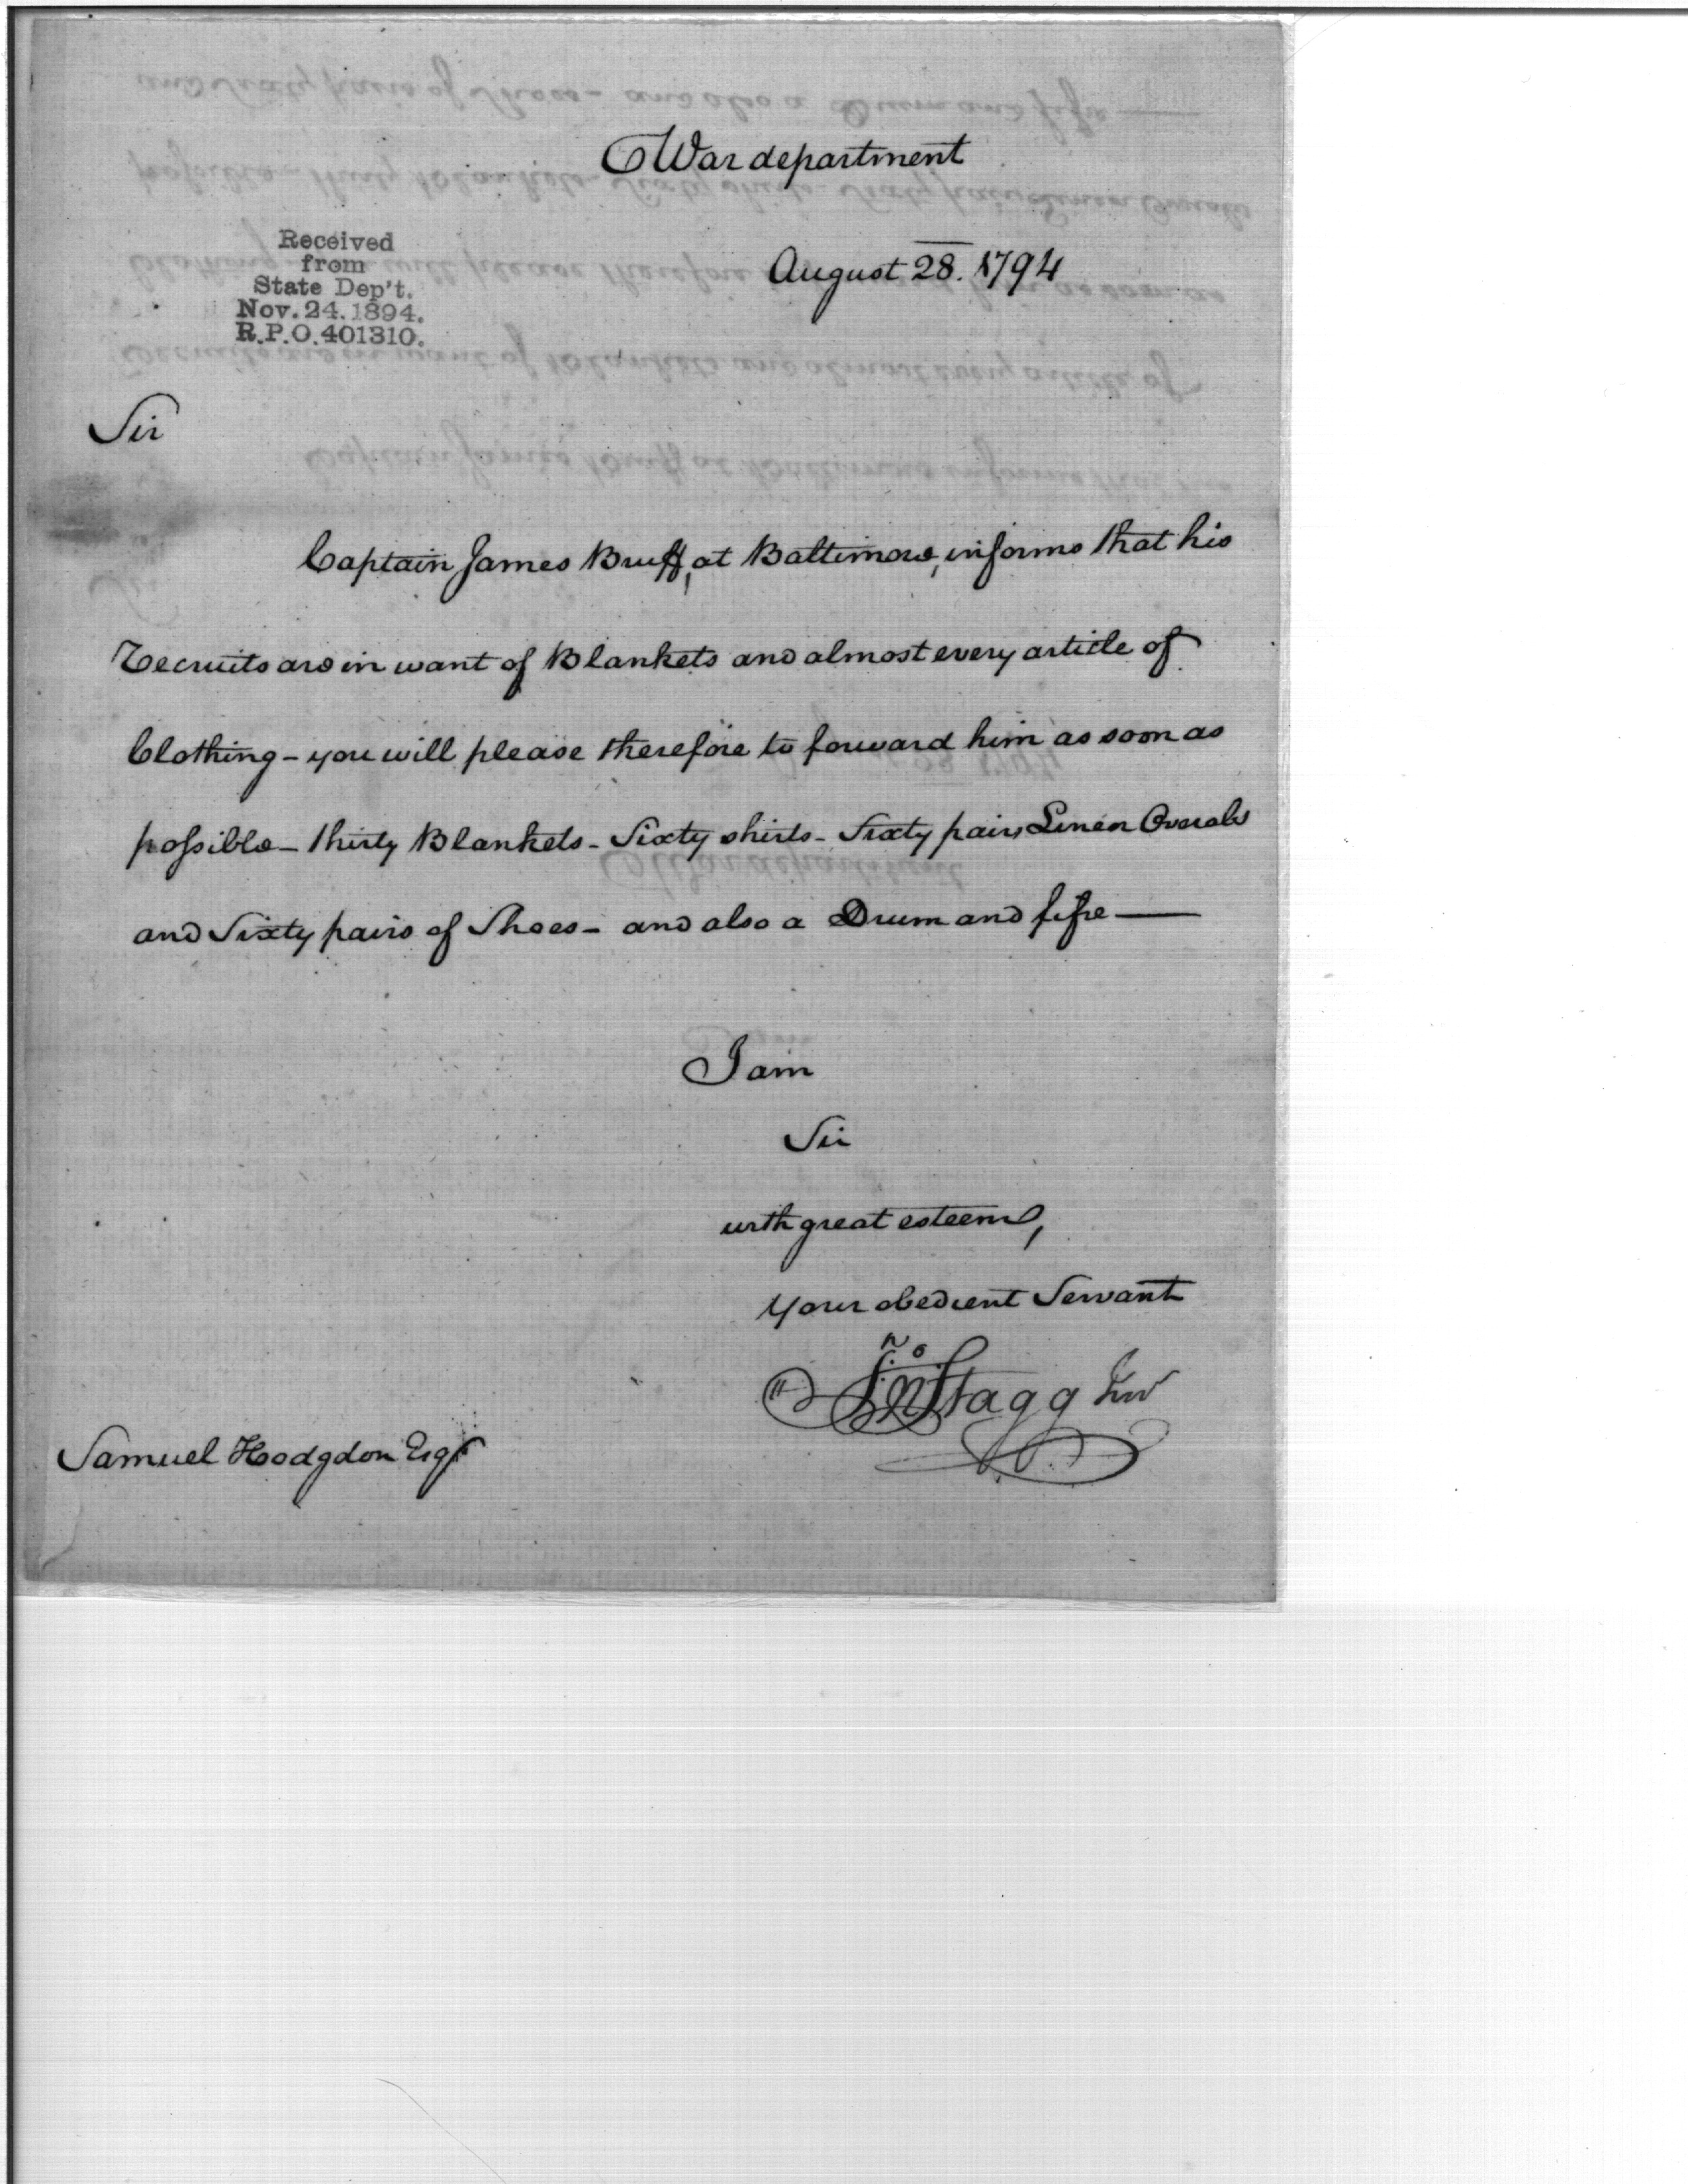 War department
August 28. 1794
Received
from
State Dep't.
Nov. 24. 1894.
R.P.O. 401310.
Sir
Captain James Bruff, at Baltimore, informs that his
Recruits are in want of Blankets and almost every article of
Clothing - you will please therefore to forward him as soon as
possible - thirty Blankets - Sixty shirts - Sixty pairs Linen Overals
and Sixty pairs of Shoes - and also a Drum and fife —
I am
Sir
with great esteem,
Your obedient Servant
Jno Stagg Junr
Samuel Hodgdon Esqr